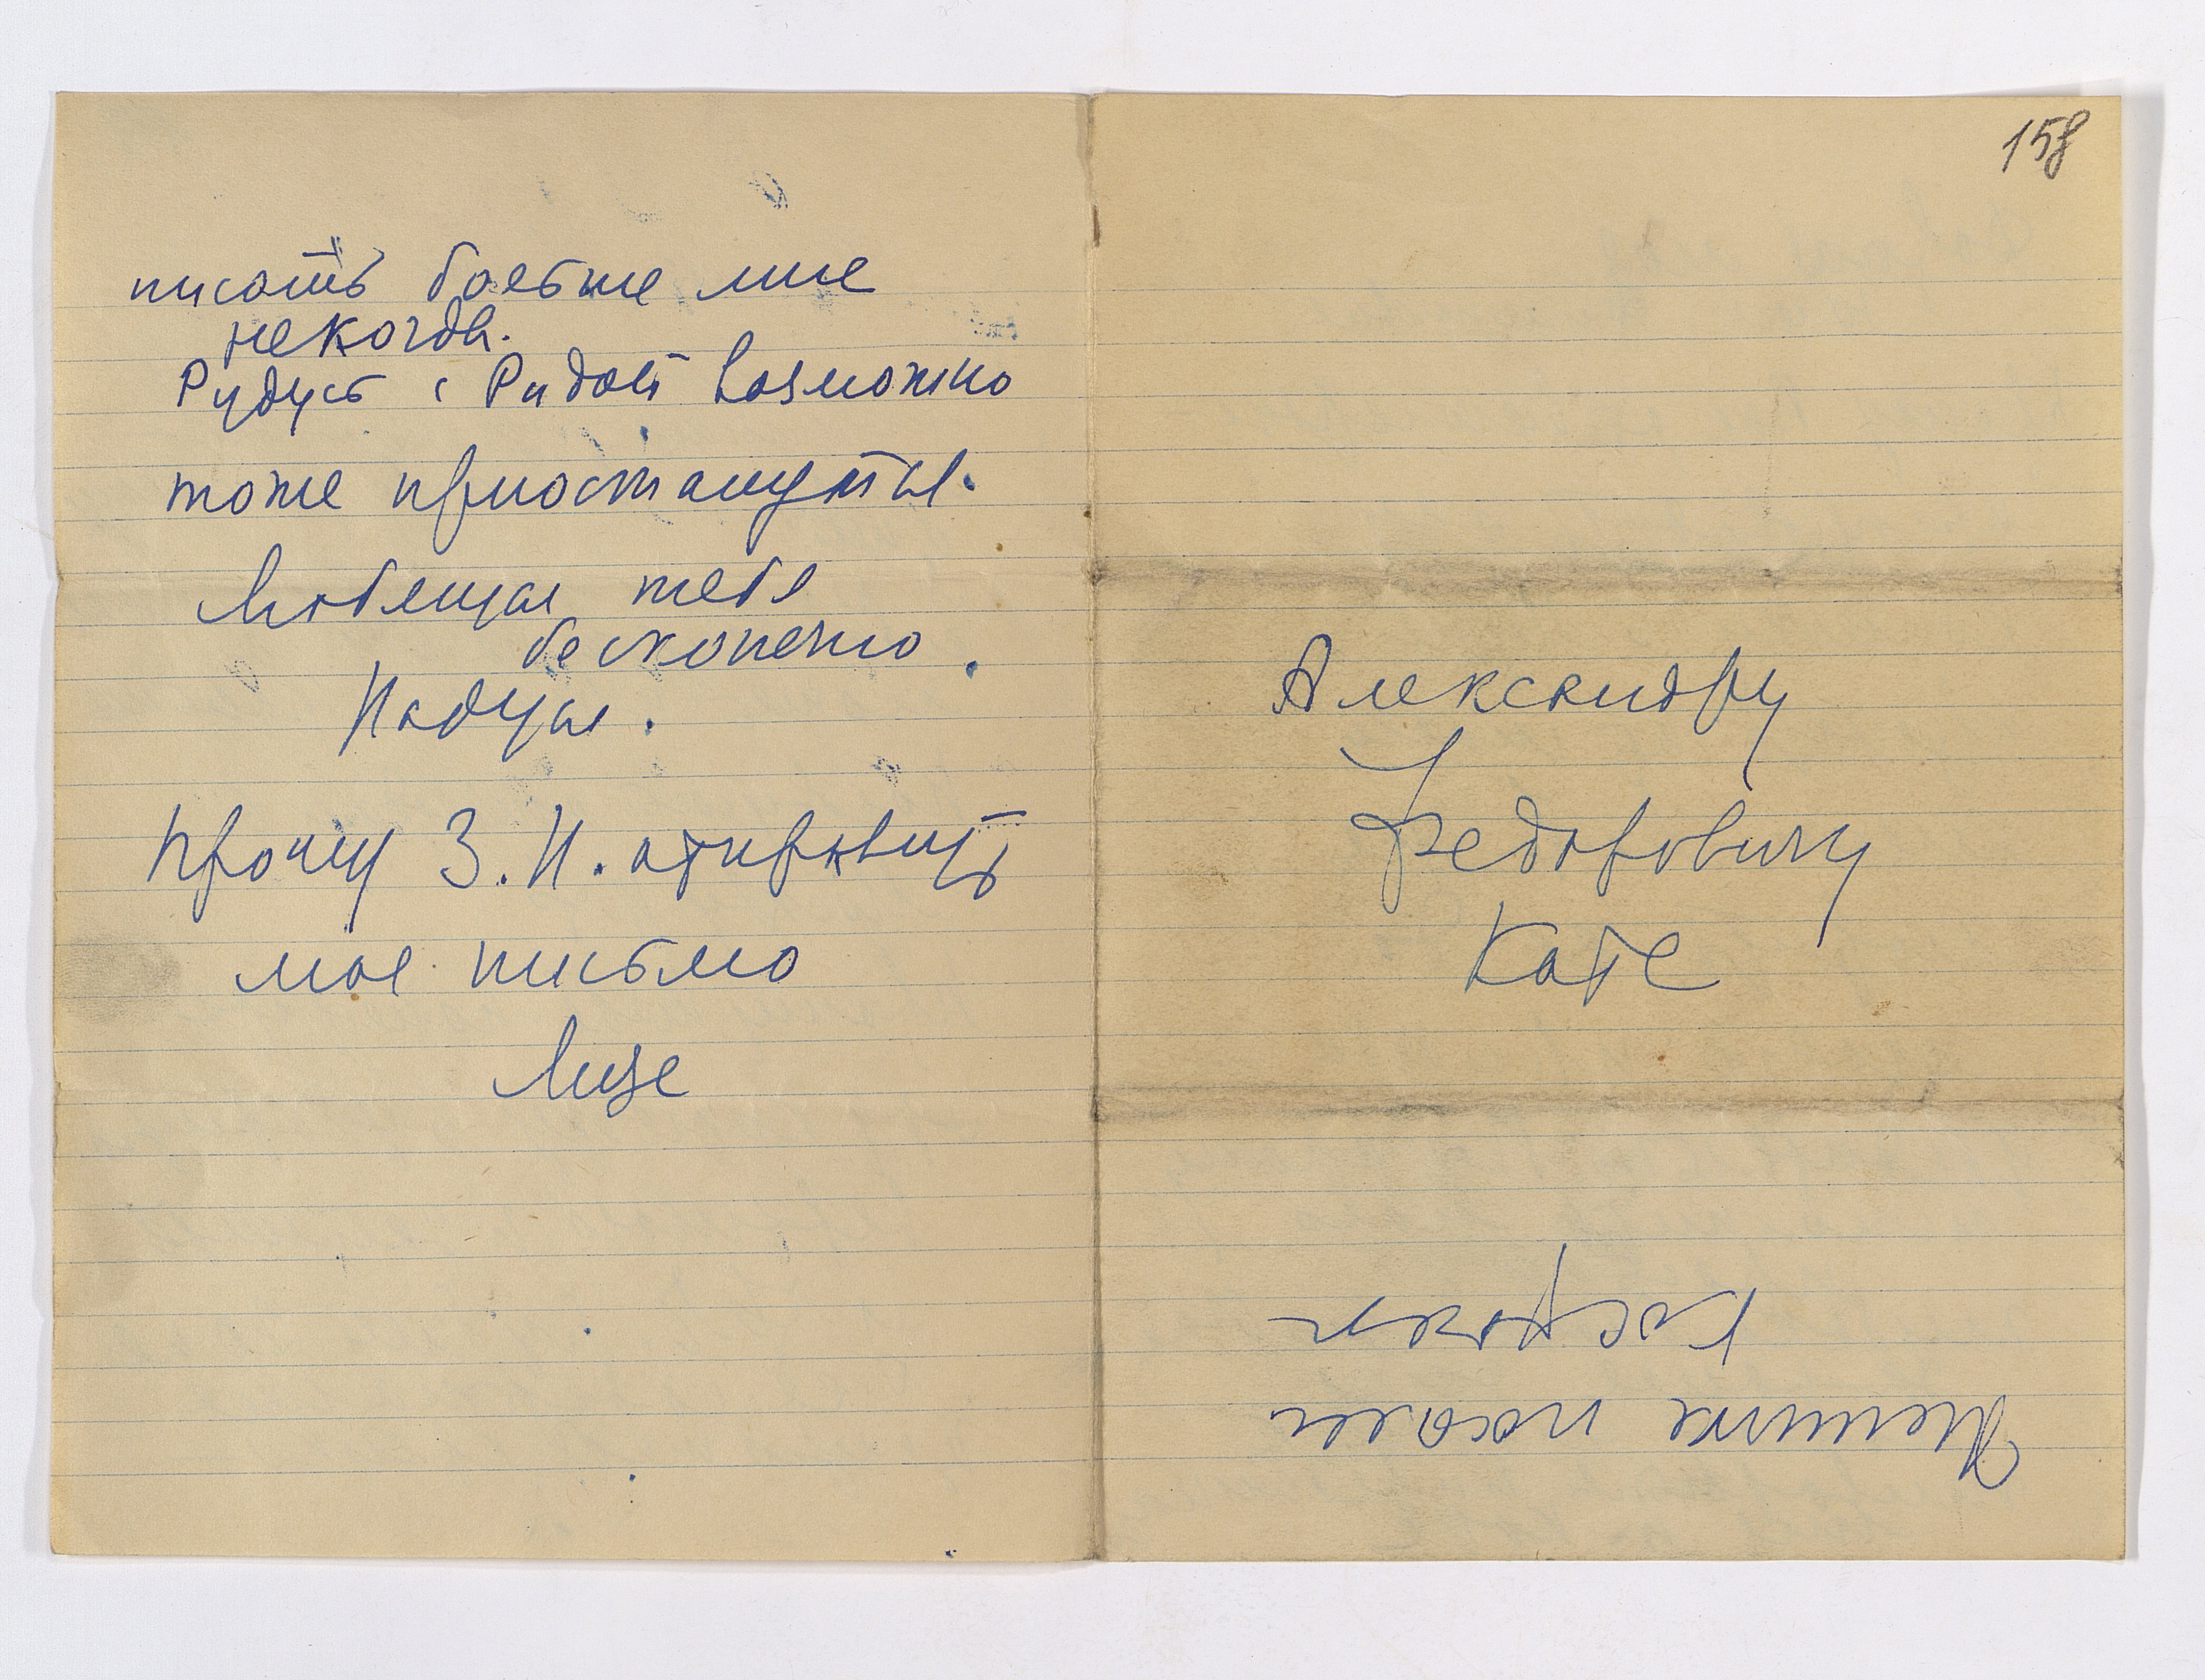 писать больше мне
некогда.
Рудусь с Радой возможно
тоже приостанутся.
Любящая тебя
бесконечно.
Надуся.
Прошу З. Н. отправить
мое письмо
Лизе
158
Александру
Федоровичу
Кате
посылки